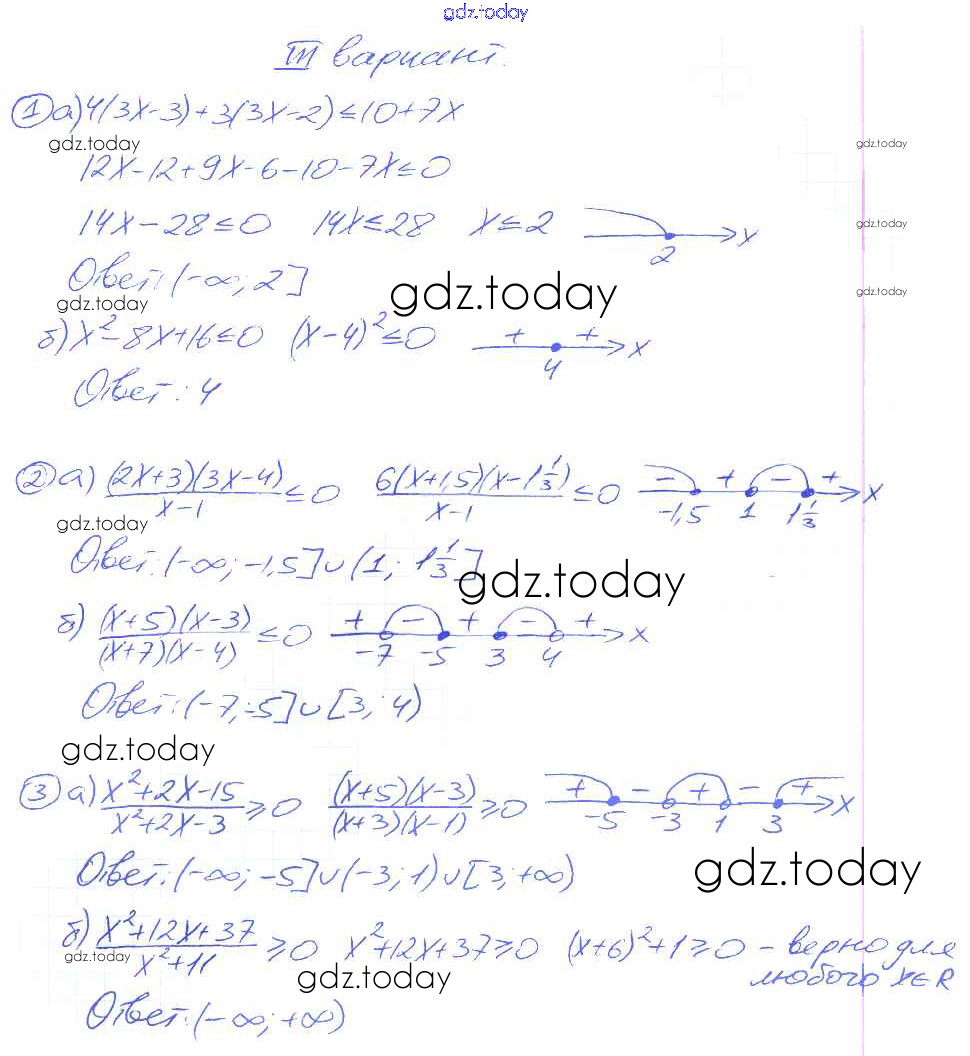 gdz.today
III вариант.
① а) 4(3x-3)+3(3x-2)≤10+7x
gdz.today
gdz.today
12x-12+9x-6-10-7x≤0
14x-28≤0 14x≤28 x≤2 2 x
gdz.today
Ответ: (-∞; 2]
gdz.today
gdz.today
gdz.today
б) x²-8x+16≤0 (x-4)²≤0 + + 4 x
Ответ: 4
② а) (2x+3)(3x-4)/(x-1) ≤0 6(x+1,5)(x-1 1/3)/(x-1) ≤0 - + - + -1,5 1 1 1/3 x
gdz.today
Ответ: (-∞; -1,5]∪(1; 1 1/3]
gdz.today
б) (x+5)(x-3)/((x+7)(x-4)) ≤0 + - + - + -7 -5 3 4 x
Ответ: (-7; -5]∪[3; 4)
gdz.today
③ а) (x²+2x-15)/(x²+2x-3) ≥0 (x+5)(x-3)/((x+3)(x-1)) ≥0 + - + - + -5 -3 1 3 x
Ответ: (-∞; -5]∪(-3; 1)∪[3; +∞)
gdz.today
б) (x²+12x+37)/(x²+11) ≥0 x²+12x+37≥0 (x+6)²+1≥0 - верно для
любого x∈R
gdz.today
gdz.today
Ответ: (-∞; +∞)